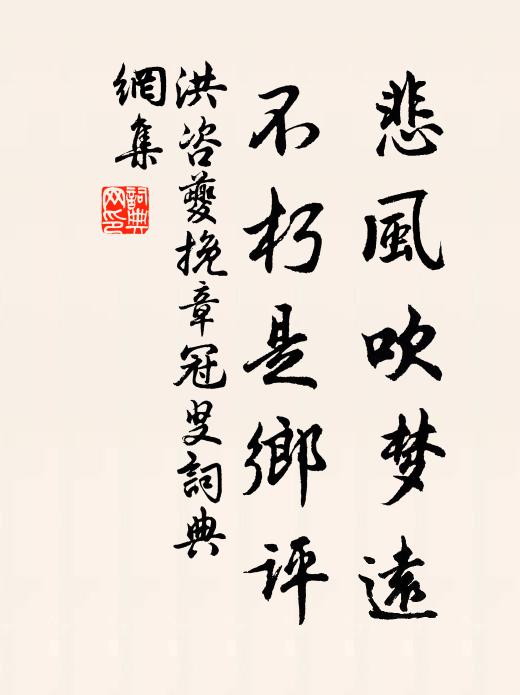 悲風吹梦遠
不朽是鄉評
洪咨夔挽章冠叟詞典
網集
詞典
网印